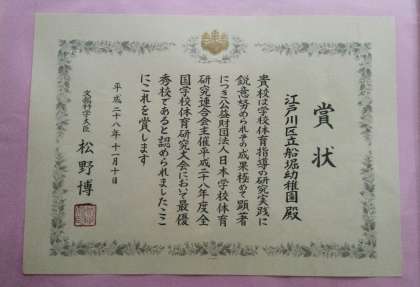 賞状
江戸川区立船堀幼稚園殿
貴校は学校体育指導の研究実践に
鋭意努められその成果極めて顕著
につき公益財団法人日本学校体育
研究連合会主催平成二十八年度全
国学校体育研究大会において最優
秀校であると認められましたここ
にこれを賞します
平成二十八年十一月十日
文部科学大臣 松野博一